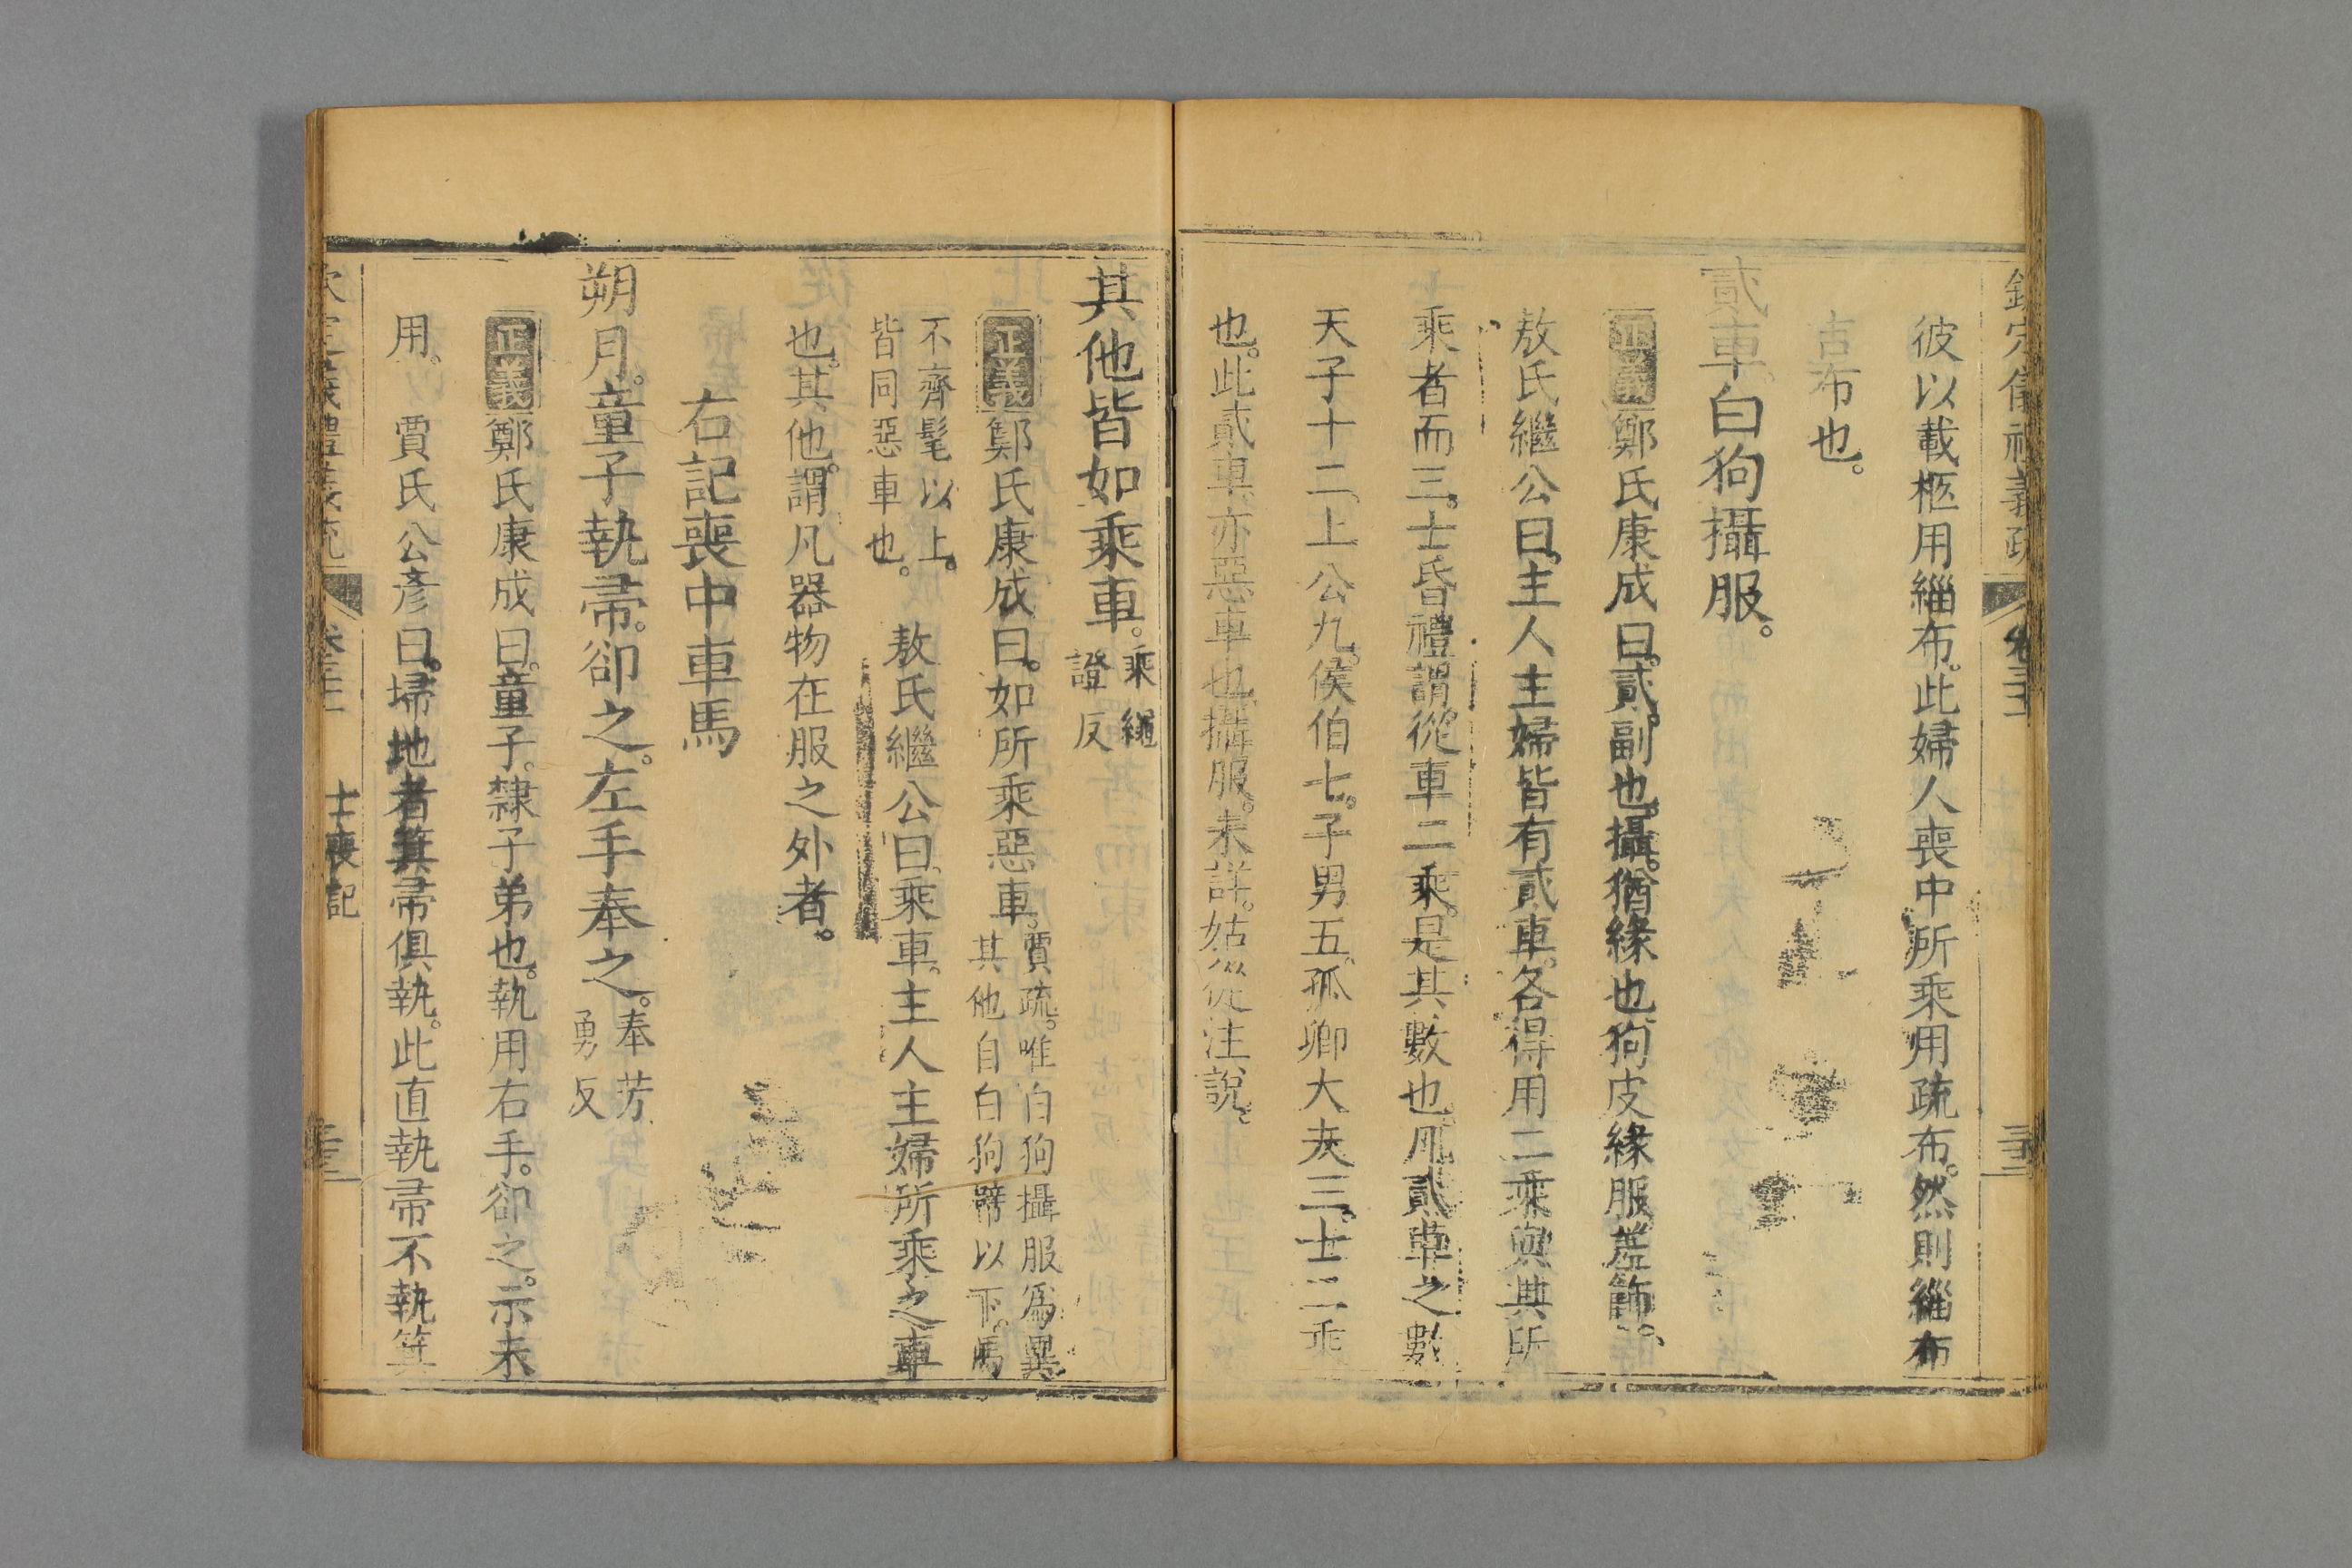 彼以載柩用緇布。此婦人喪中所乘用疏布。然則緇布
古布也。
貳車白狗攝服。
正義鄭氏康成曰。貳。副也。攝。猶緣也。狗皮緣服差飾。
敖氏繼公曰。主人主婦皆有貳車。各得用二乘與其所
乘者而三。士昏禮謂從車二乘。是其數也。凡貳車之數
天子十二。上公九。侯伯七。子男五。孤卿大夫三。士二乘
也。此貳車亦惡車也。攝服。未詳。姑從注說。
欽定儀禮義疏
其他皆如乘車。乘繩
證反
正義鄭氏康成曰。如所乘惡車。賈疏。唯白狗攝服為異
其他自白狗幦以下。馬
不齊髦以上。
皆同惡車也。
敖氏繼公曰。乘車。主人主婦所乘之車
也。其他。謂凡器物在服之外者。
右記喪中車馬
朔月。童子執帚。卻之。左手奉之。奉芳
勇反
正義鄭氏康成曰。童子。隸子弟也。執用右手。卻之。示未
用。 賈氏公彥曰。埽地者箕帚俱執。此直執帚不執箕
欽定儀禮義疏
士喪記